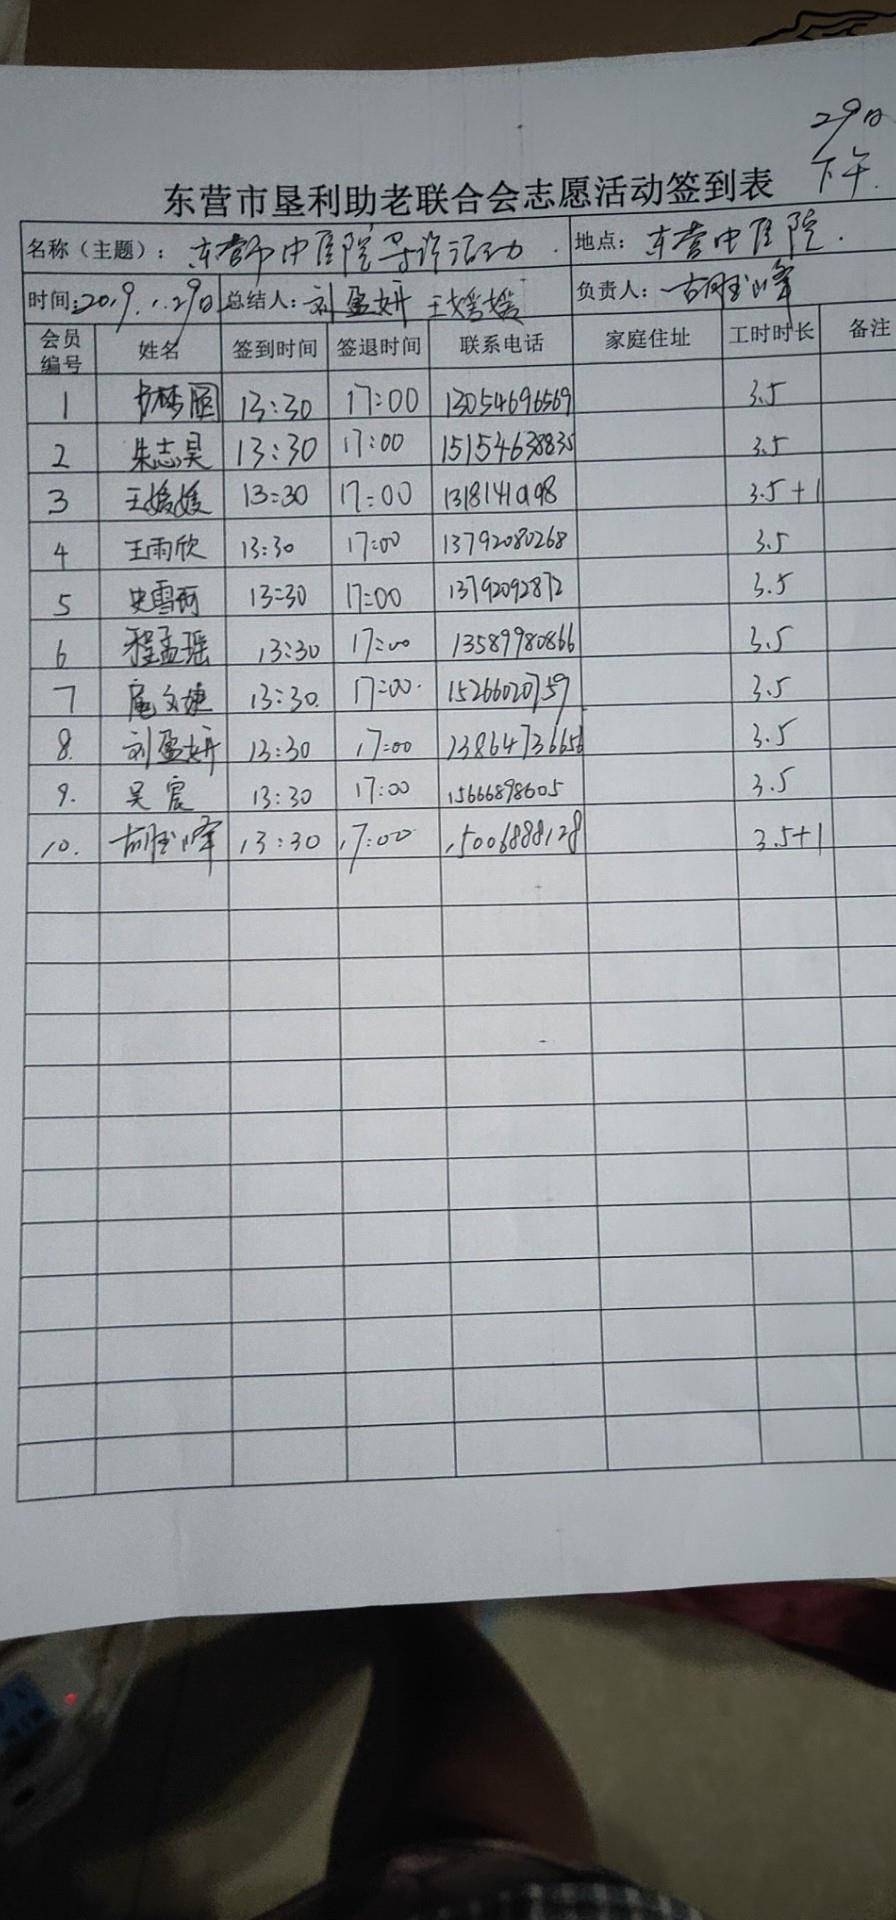 29日
下午.
东营市垦利助老联合会志愿活动签到表
名称（主题）： 东营市中医院导诊活动. 地点： 东营中医院.
时间：2019.1.29日 总结人： 刘盈妍 王媛媛 负责人： 胡胜峰
会员编号 姓名 签到时间 签退时间 联系电话 家庭住址 工时时长 备注
1 13:30 17:00 13054696569 3.5
2 朱志昊 13:30 17:00 15154638835 3.5
3 王媛媛 13:30 17:00 3.5+1
4 王雨欣 13:30 17:00 13792080268 3.5
5 史雪珂 13:30 17:00 13792092872 3.5
6 程孟瑶 13:30 17:00 13589980866 3.5
7 庞文婕 13:30. 17:00. 15266020759 3.5
8. 刘盈妍 13:30 17:00 13864736656 3.5
9. 吴宸 13:30 17:00 15666898605 3.5
10. 胡胜峰 13:30 17:00 15006888128 3.5+1